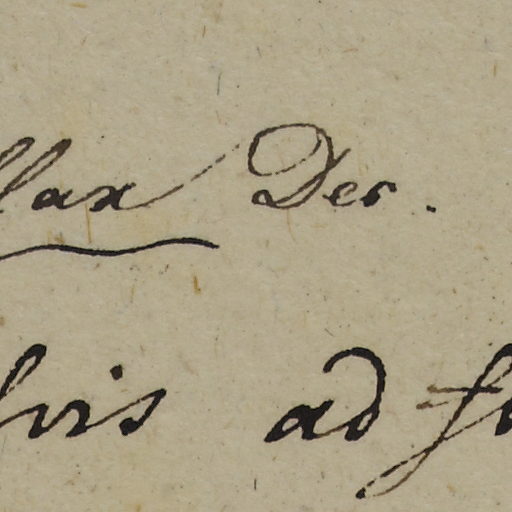 llax Der.
lvis ad f